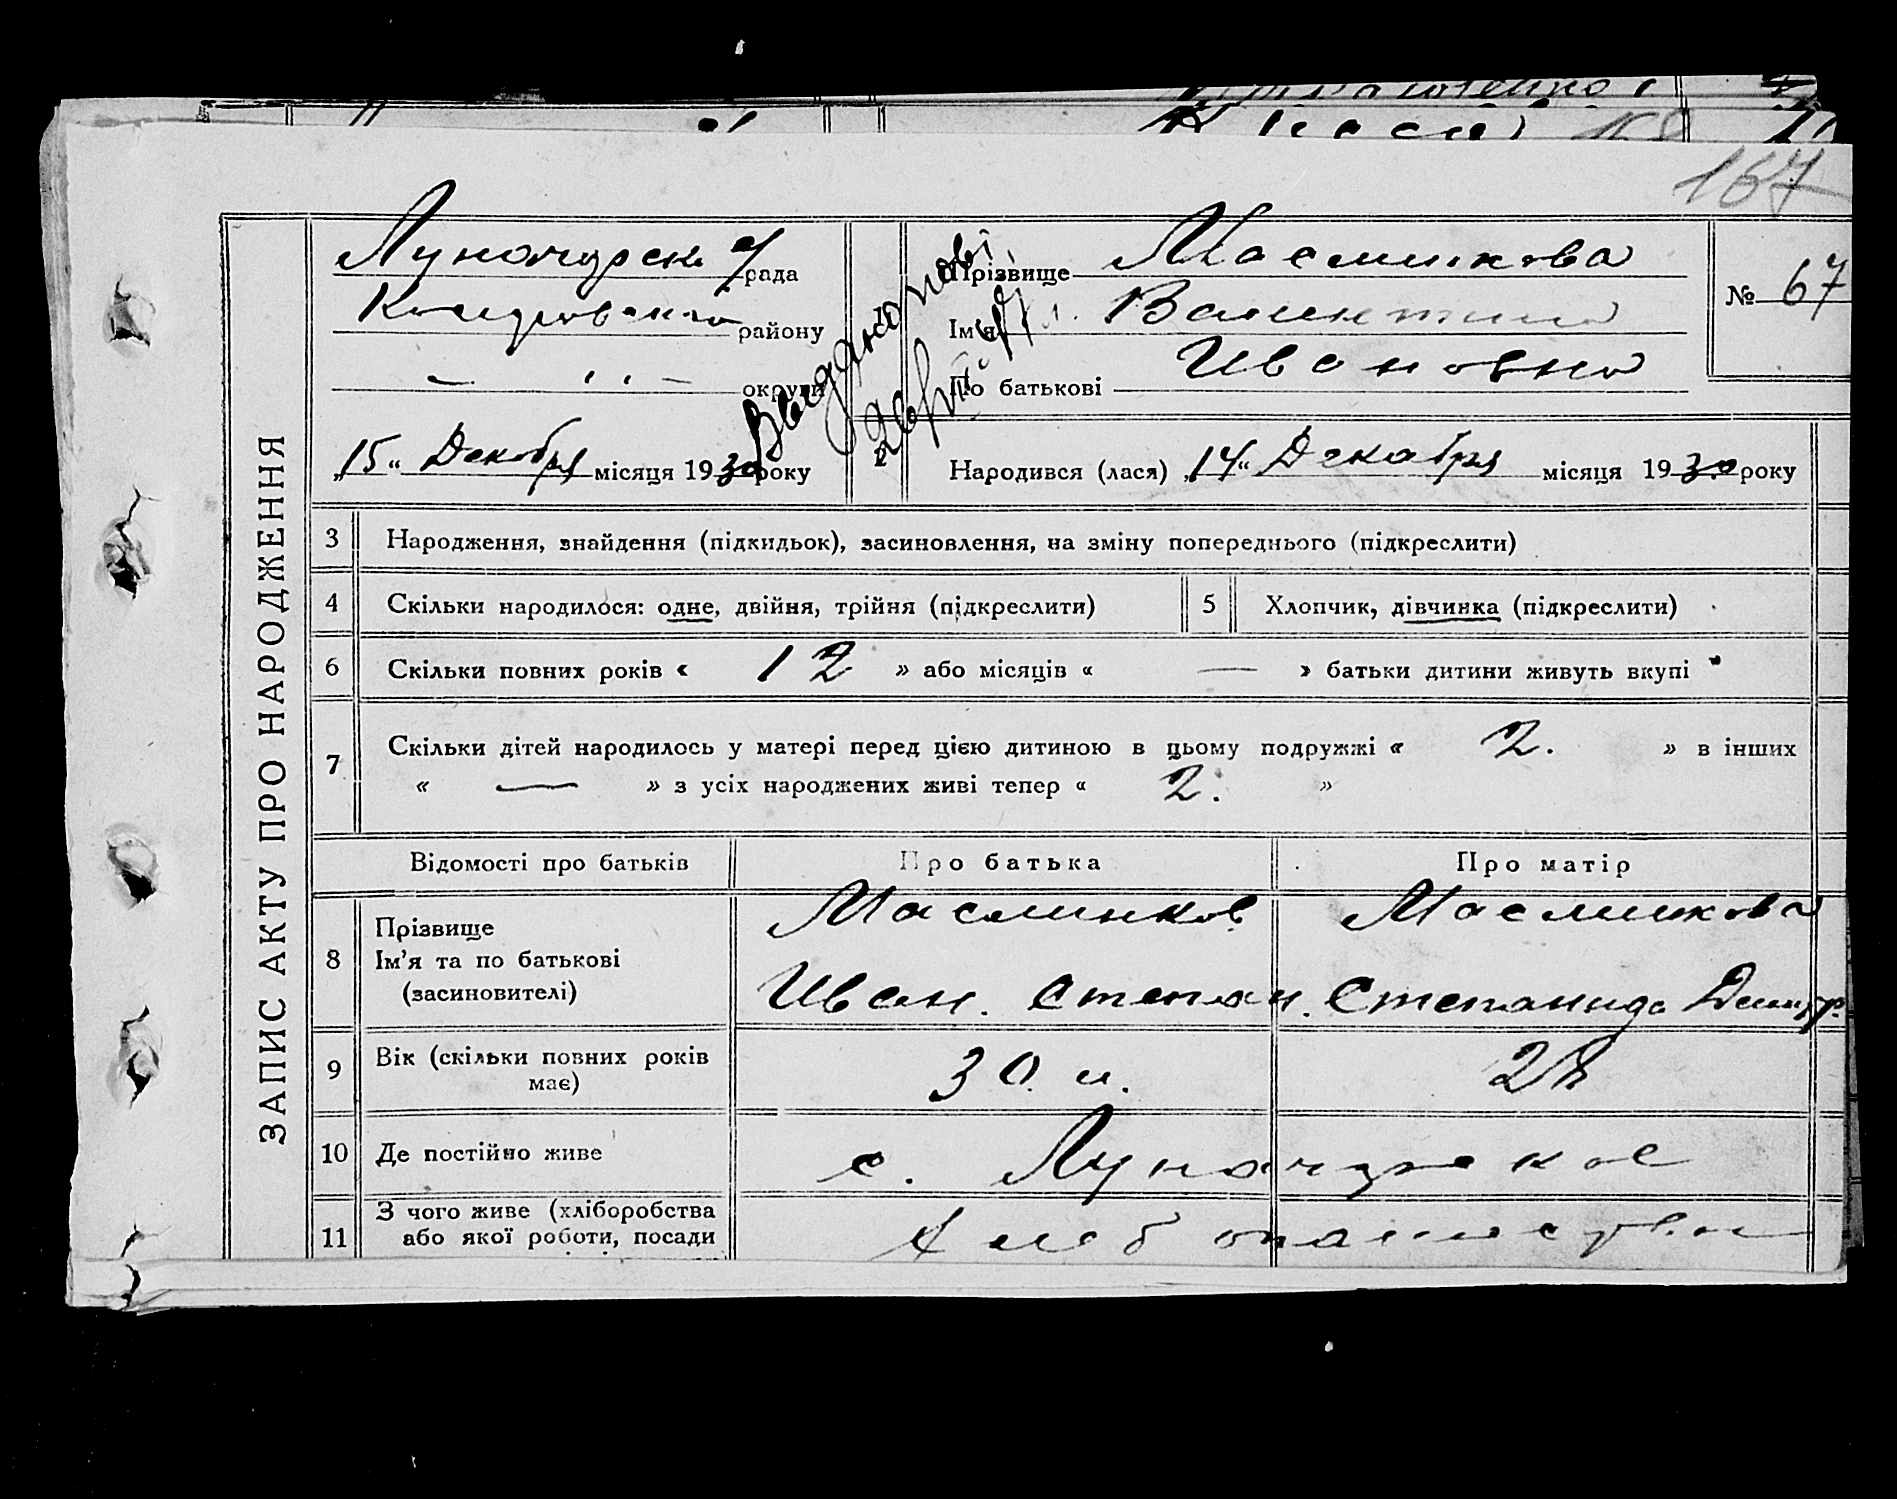 167
Луначарск
рада
района
району
округи
"15" Декабря місяця 1930 року
Прізвище Маслинкова
Ім'я Валентина
По батькові Ивановна
№ 67
Народився (лася) "14" Декабря місяця 1930 року
ЗАПИС АКТУ ПРО НАРОДЖЕННЯ
3 Народження, знайдення (підкидьок), засиновлення, на зміну попереднього (підкреслити)
4 Скільки народилося: одне, двійня, трійня (підкреслити) 5 Хлопчик, дівчинка (підкреслити)
6 Скільки повних років « 12 » або місяців « — » батьки дитини живуть вкупі
7 Скільки дітей народилось у матері перед цією дитиною в цьому подружжі « 2. » в інших
« — » з усіх народжених живі тепер « 2. »
Відомості про батьків Про батька Про матір
8 Прізвище
Ім'я та по батькові
(засиновителі)
Маслинков
Иван. Степан.
Маслинкова
Степанида Димитр.
9 Вік (скільки повних років
має)
30 28
10 Де постійно живе с. Луначарское
11 З чого живе (хліборобства
або якої роботи, посади
Хлебопашество